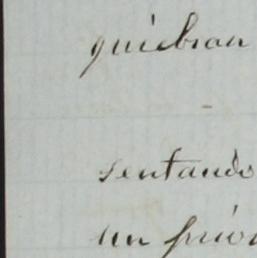 quiebran
sentando
un prior